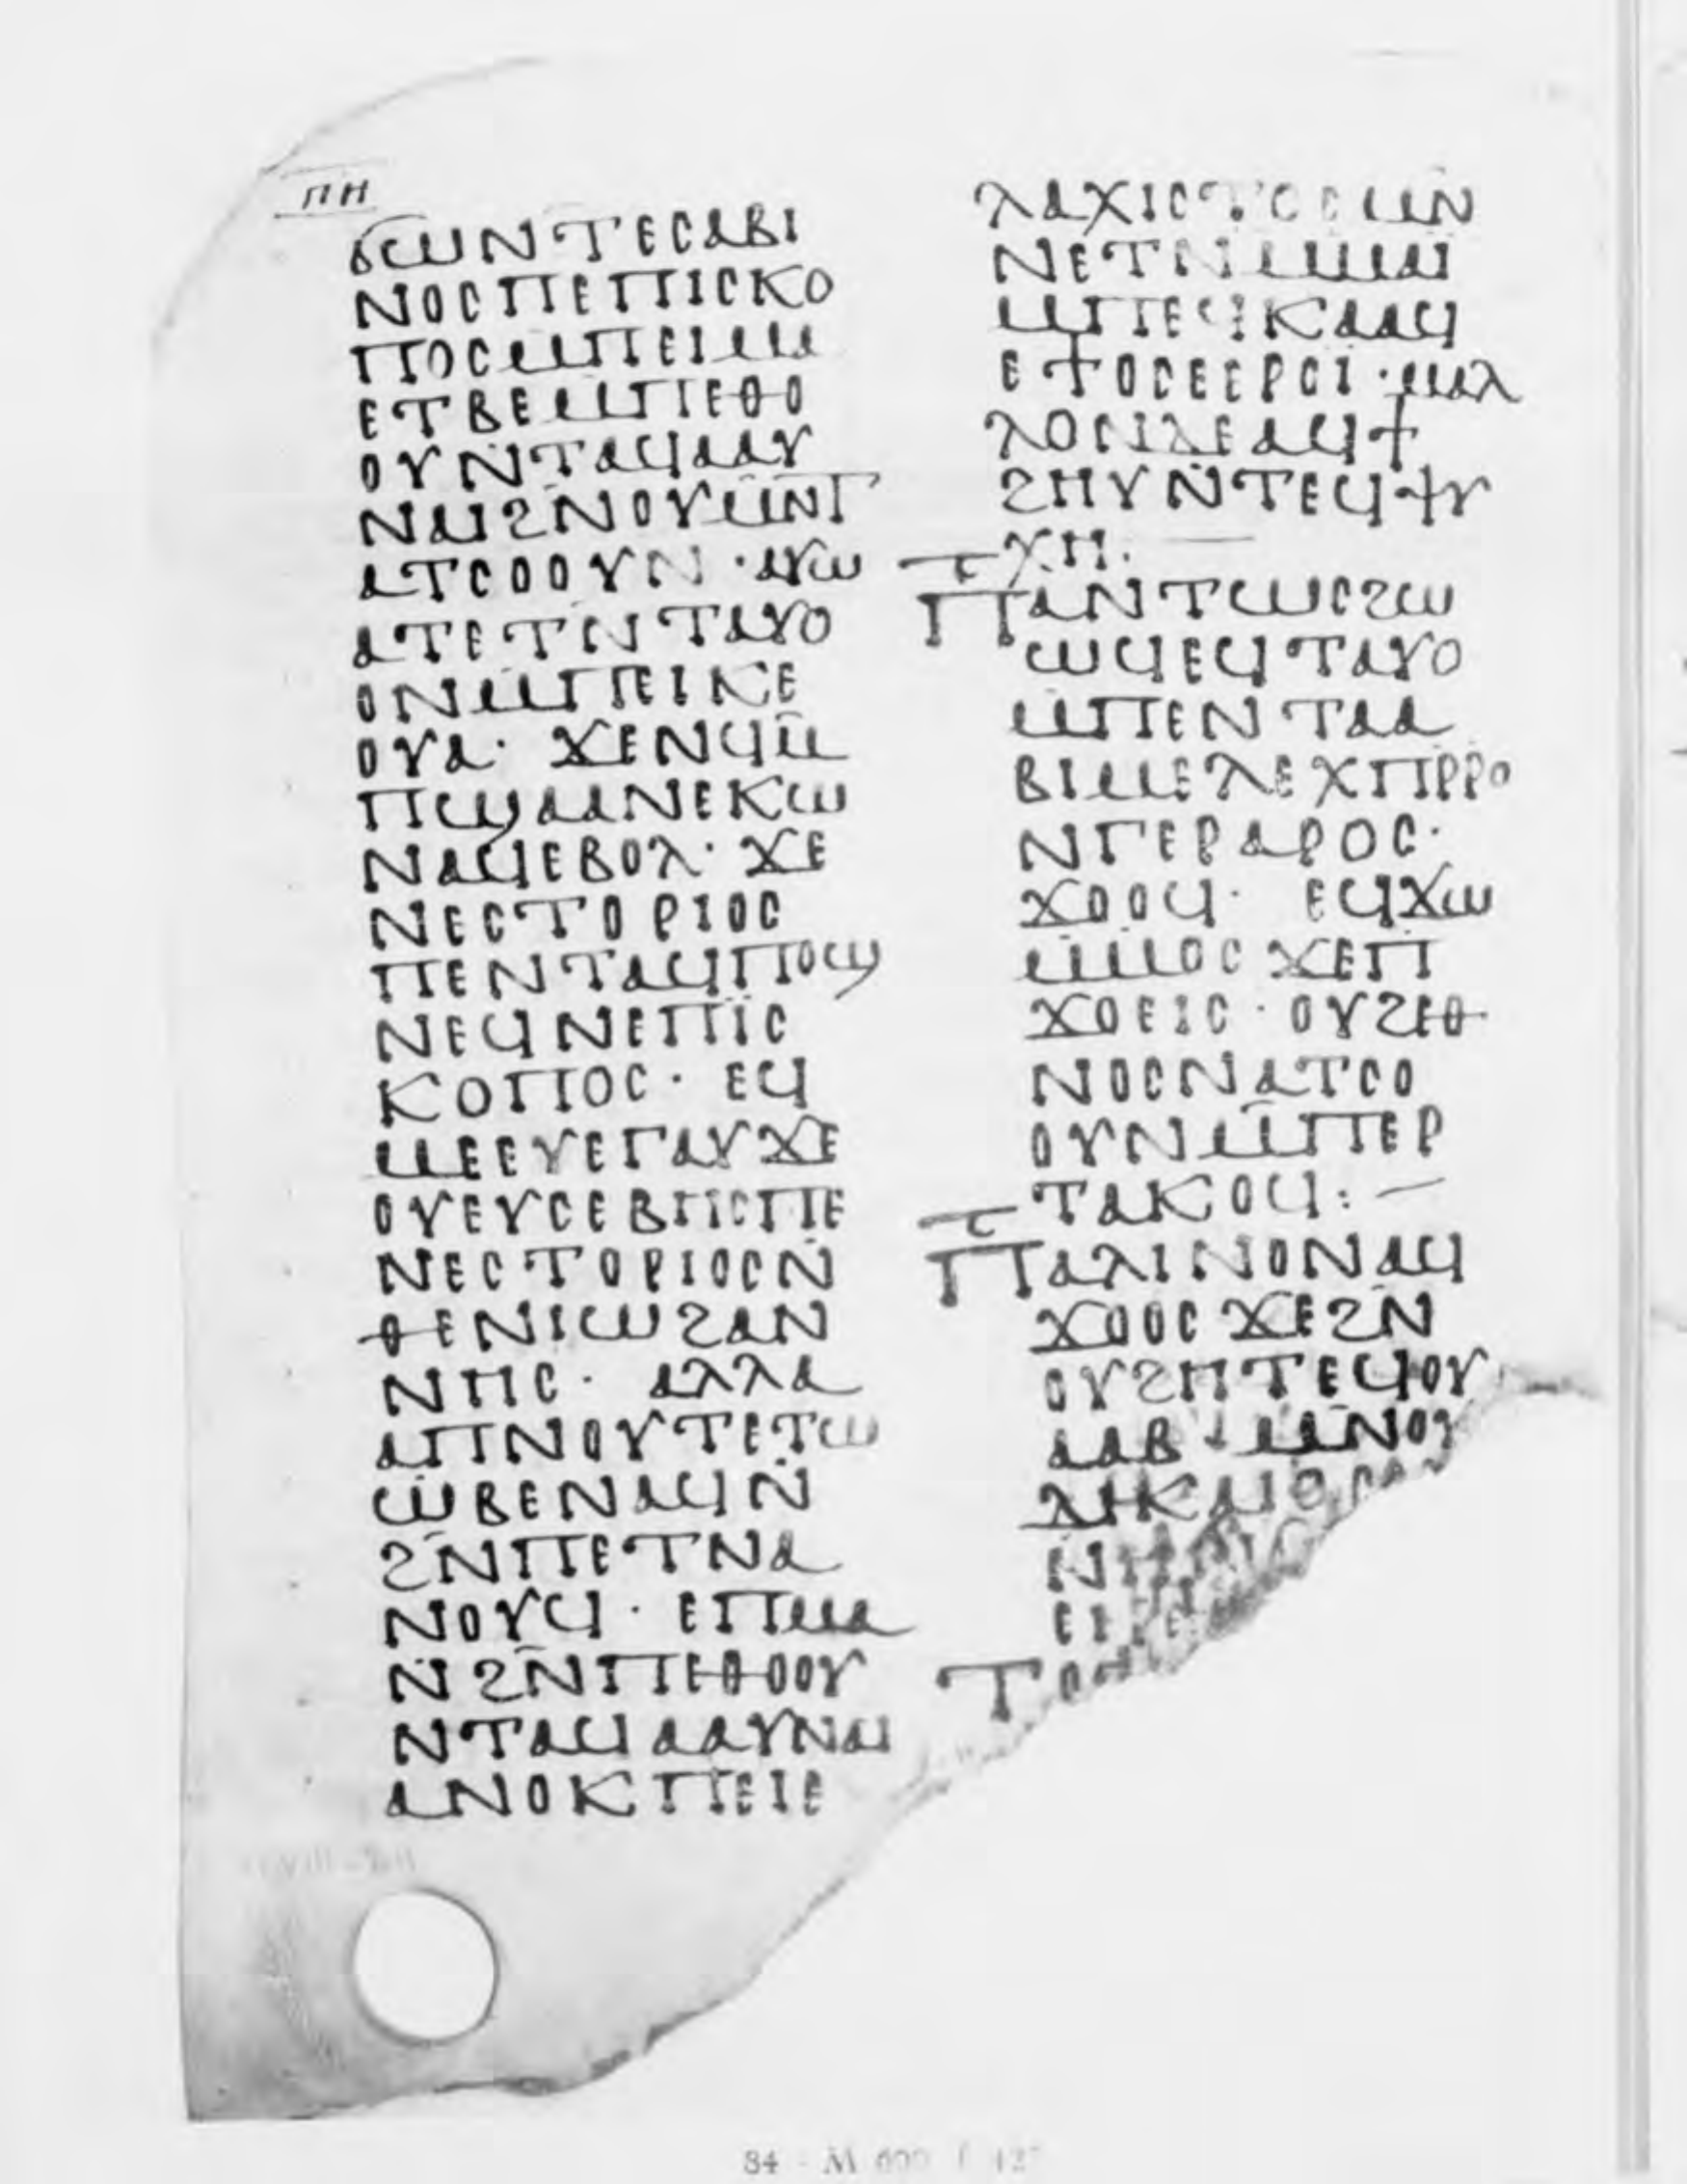 ⲡⲏ
ϭⲱⲛⲧⲉⲥⲁⲃⲓ
ⲛⲟⲥⲡⲉⲡⲓⲥⲕⲟ
ⲡⲟⲥⲙⲡⲉⲓⲙⲁ
ⲉⲧⲃⲉⲙⲡⲉⲑⲟ
ⲟⲩⲛⲧⲁϥⲁⲁⲩ
ⲛⲁⲓϩⲛⲟⲩⲙⲛⲧ
ⲁⲧⲥⲟⲟⲩⲛ · ⲁⲩⲱ
ⲁⲧⲉⲧⲛⲧⲁⲩⲟ
ⲟⲛⲙⲡⲉⲓⲕⲉ
ⲟⲩⲁ · ϫⲉⲛϥⲙ̄
ⲡϣⲁⲁⲛⲉⲕⲱ
ⲛⲁϥⲉⲃⲟⲗ · ϫⲉ
ⲛⲉⲥⲧⲟⲣⲓⲟⲥ
ⲡⲉⲛⲧⲁϥⲡⲟϣ
ⲛⲉϥⲛⲉⲡⲓⲥ
ⲕⲟⲡⲟⲥ · ⲉϥ
ⲙⲉⲉⲩⲉⲅⲁⲩϫⲉ
ⲟⲩⲉⲩⲥⲉⲃⲏⲥⲡⲉ
ⲛⲉⲥⲧⲟⲣⲓⲟⲥⲛ
ⲑⲉⲛⲓⲱϩⲁⲛ
ⲛⲏⲥ · ⲁⲗⲗⲁ
ⲁⲡⲛⲟⲩⲧⲉⲧⲱ
ⲱⲃⲉⲛⲁϥⲛ̇
ϩⲛ̄ⲡⲉⲧⲛⲁ
ⲛⲟⲩϥ · ⲉⲡⲙⲁ
ⲛϩⲛ̄ⲡⲉⲑⲟⲟⲩ
ⲛⲧⲁϥⲁⲁⲩⲛⲁⲓ
ⲁⲛⲟⲕⲡⲉⲓⲉ
ⲗⲁⲭⲓⲥⲧⲟⲥⲙⲛ
ⲛⲉⲧⲛⲙⲙⲁⲓ
ⲙⲡⲉϥⲕⲁⲁϥ
ⲉϯⲟⲥⲉⲉⲣⲟⲓ · ⲙⲁⲗ
ⲗⲟⲛⲇⲉⲁϥϯ
ϩⲏⲩⲛ̇ⲧⲉϥⲯⲩ
ⲭⲏ.
ⲡⲁⲛⲧⲱⲥϩⲱ
ⲱϥⲉϥⲧⲁⲩⲟ
ⲙⲡⲉⲛⲧⲁⲁ
ⲃⲓⲙⲉⲗⲉⲭⲡⲣⲣⲟ
ⲛⲅⲉⲣⲁⲣⲟⲥ ·
ϫⲟⲟϥ · ⲉϥϫⲱ
ⲙⲙⲟⲥϫⲉⲡ
ϫⲟⲉⲓⲥ · ⲟⲩϩⲉⲑ
ⲛⲟⲥⲛⲁⲧⲥⲟ
ⲟⲩⲛⲙ̄ⲡⲉⲣ
ⲧⲁⲕⲟϥ :
ⲡⲁⲗⲓⲛⲟⲛⲁϥ
ϫⲟⲟⲥϫⲉϩⲛ
ⲟⲩϩⲏⲧⲉϥⲟⲩ
ⲁⲁⲃ ⲙⲛⲟⲩ